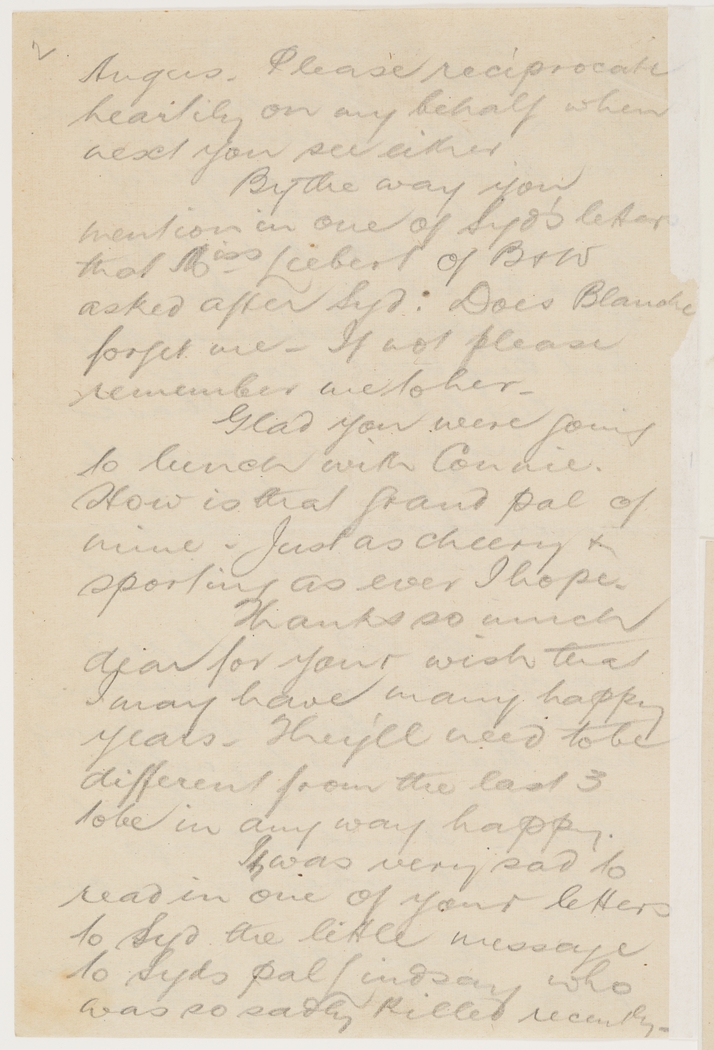 2
Angus. Please reciprocate
heartily on my behalf when
next you see either
By the way you
mention in one of Syd's letters
that Miss Liebert of B & W
asked after Syd: Does Blanche
forget me - If not please
remember me to her -
Glad you were going
to lunch with Connie.
How is that grand pal of
mine - Just as cheery &
sporting as ever I hope.
Thanks so much
dear for your wish that
I may have many happy
years - They'll need to be
different from the last 3
to be in any way happy.
It was very sad to
read in one of your letters
to Syd the little message
to Syds pal Lindsay who
was so sadly killed recently -